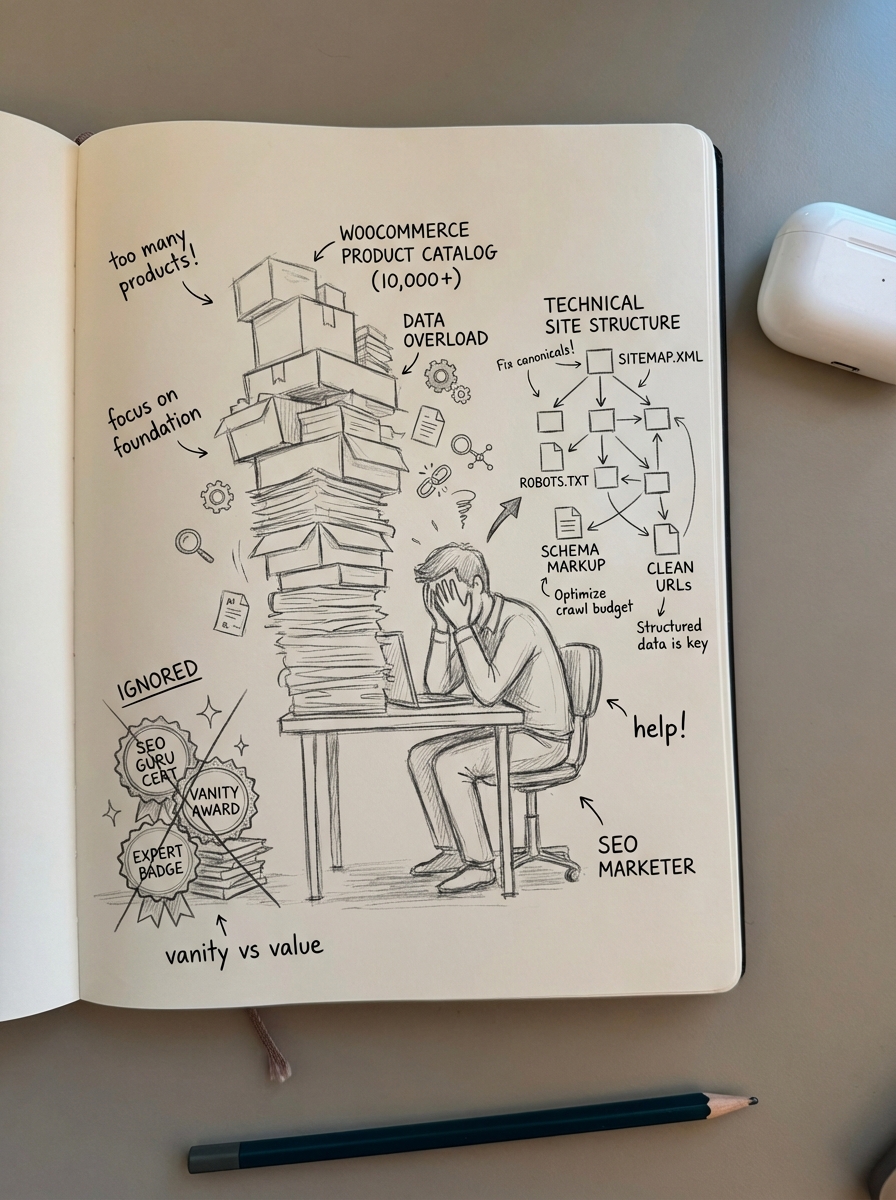 too many
products!
WOOCOMMERCE
PRODUCT CATALOG
(10,000+)
DATA
OVERLOAD
TECHNICAL
SITE STRUCTURE
Fix canonicals!
SITEMAP.XML
focus on
foundation
ROBOTS.TXT
SCHEMA
MARKUP
CLEAN
URLs
Optimize
crawl budget
Structured
data is key
AI
IGNORED
SEO
GURU
CERT
VANITY
AWARD
EXPERT
BADGE
help!
SEO
MARKETER
vanity vs value